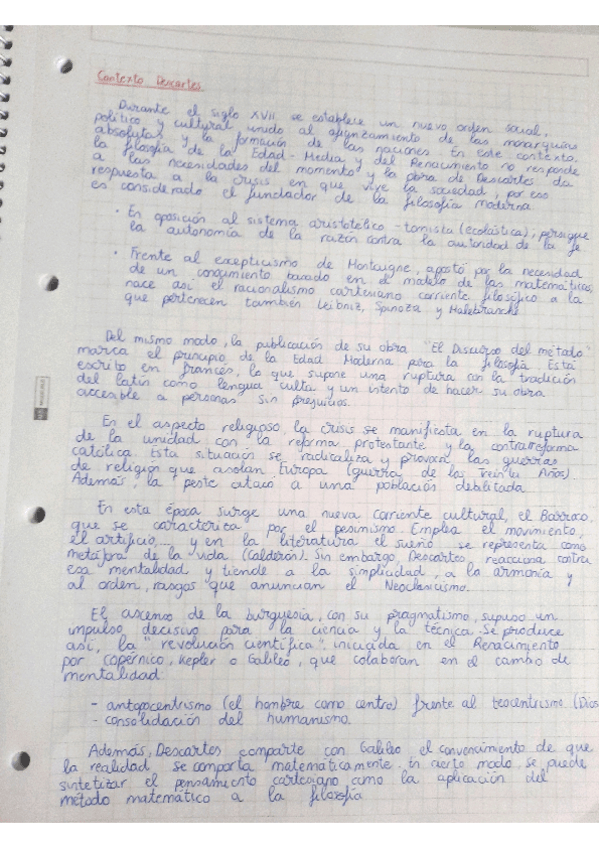 Contexto Descartes
Durante el siglo XVII se establece un nuevo orden social,
político y cultural unido al afianzamiento de las monarquías
absolutas y la formación de las naciones. En este contexto,
la filosofía de la Edad-Media y del Renacimiento no responde
a las necesidades del momento y la obra de Descartes da
respuesta a la crisis en que vive la sociedad, por eso
es considerado el fundador de la filosofía moderna.
· En oposición al sistema aristotélico-tomista (escolástica), persigue
la autonomía de la razón contra la autoridad de la fe
· Frente al escepticismo de Montaigne, apostó por la necesidad
de un conocimiento basado en el modelo de las matemáticas,
nace así el racionalismo cartesiano corriente filosófica a la
que pertenecen también Leibniz, Spinoza y Malebranche
Del mismo modo, la publicación de su obra "El Discurso del método"
marca el principio de la Edad Moderna para la filosofía. Está
escrito en francés, lo que supone una ruptura con la tradición
del latín como lengua culta y un intento de hacer su obra
accesible a personas sin prejuicios.
En el aspecto religioso, la crisis se manifiesta en la ruptura
de la unidad con la reforma protestante y la contrarreforma
católica. Esta situación se radicaliza y provoca las guerras
de religión que asolan Europa (guerra de los Treinta Años).
Además, la peste atacó a una población debilitada.
En esta época surge una nueva corriente cultural, el Barroco,
que se caracteriza por el pesimismo. Emplea el movimiento,
el artificio,... y en la literatura el sueño se representa como
metáfora de la vida (Calderón). Sin embargo, Descartes reacciona contra
esa mentalidad y tiende a la simplicidad, a la armonía y
al orden, rasgos que anuncian el Neoclasicismo.
El ascenso de la burguesía, con su pragmatismo, supuso un
impulso decisivo para la ciencia y la técnica. Se produce
así, la "revolución científica", iniciada en el Renacimiento
por Copérnico, Kepler o Galileo, que colaboran en el cambio de
mentalidad
- antropocentrismo (el hombre como centro) frente al teocentrismo (Dios
- consolidación del humanismo.
Además, Descartes comparte con Galileo el convencimiento de que
la realidad se comporta matemáticamente. En cierto modo, se puede
sintetizar el pensamiento cartesiano como la aplicación del
método matemático a la filosofía